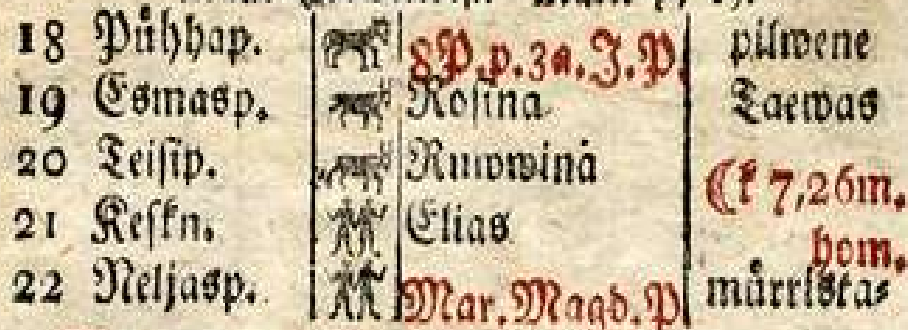 18 Pühhap. 8 P. p. 3 a. J. P. pilwene
19 Esmasp. Rosina Taewas
20 Teisip. Ruwwina
☾ k 7,26m.
21 Keskn. Elias
hom.
22 Neljasp. Mar. Magd. P märrista⸗